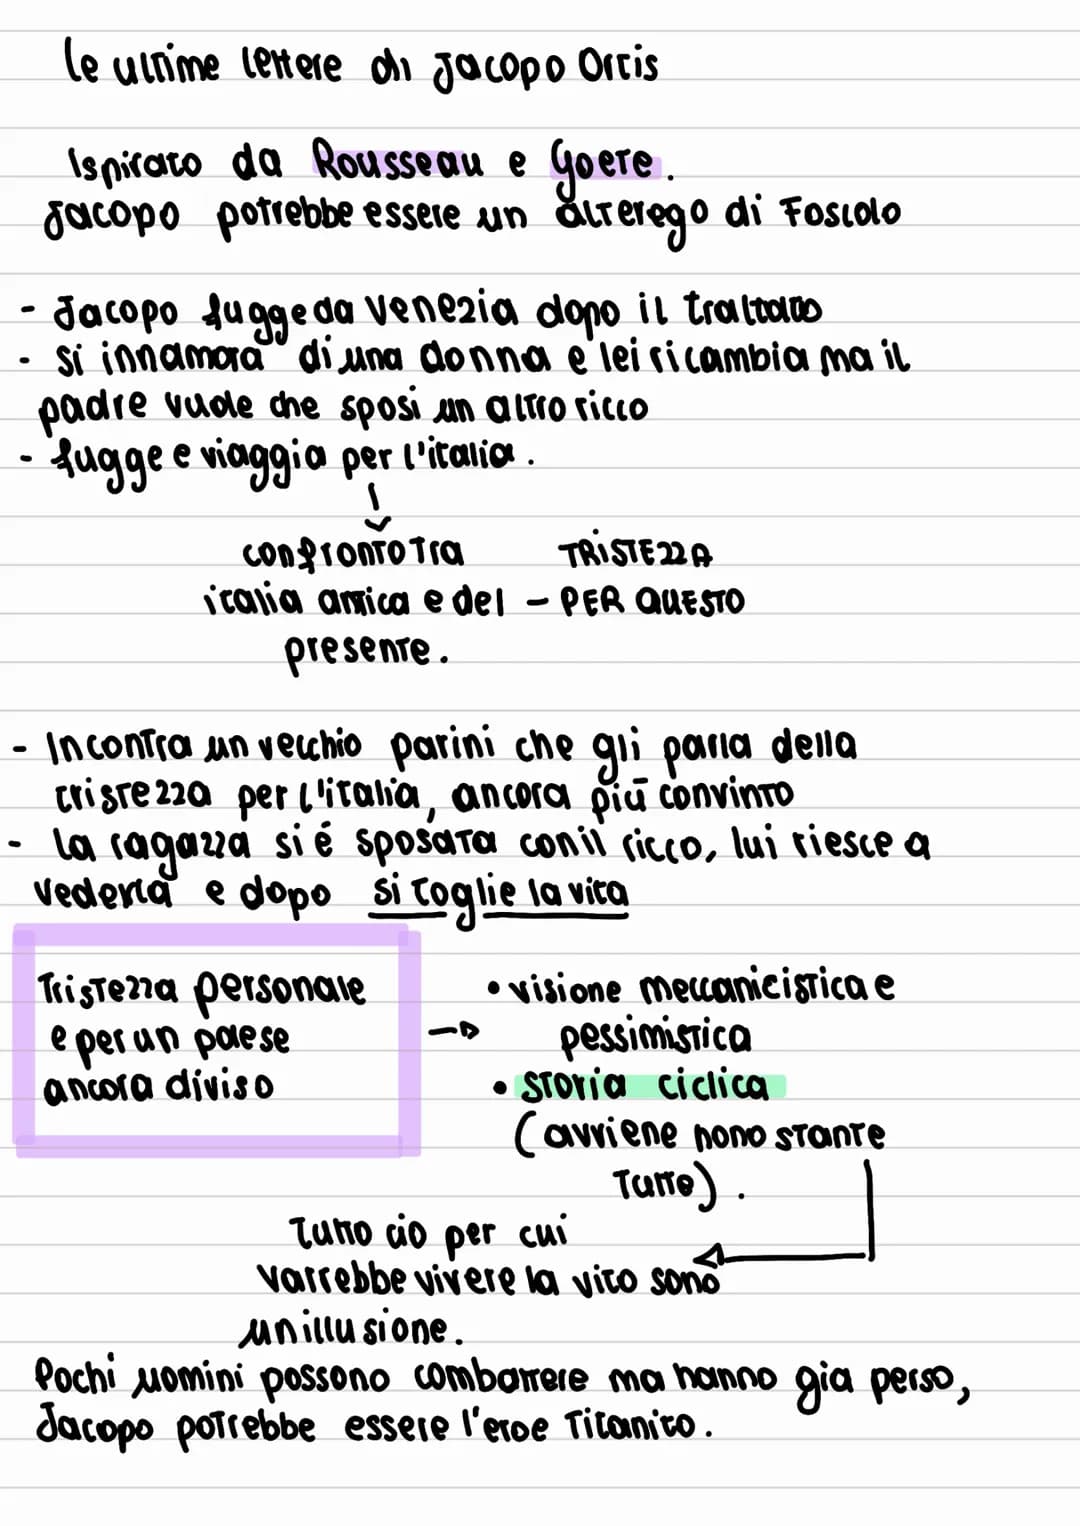 le ultime lettere di Jacopo Ortis
Ispirato da Rousseau e Goete.
Jacopo potrebbe essere un alterego di Foscolo
- Jacopo fugge da Venezia dopo il trattato
- si innamora di una donna e lei ricambia ma il
padre vuole che sposi un altro ricco
- fugge e viaggia per l'italia.
confronto tra TRISTEZZA
italia antica e del - PER QUESTO
presente.
- Incontra un vecchio parini che gli parla della
tristezza per l'italia, ancora più convinto
- la ragazza si é sposata con il ricco, lui riesce a
vederla e dopo si toglie la vita
Tristezza personale
e per un paese
ancora diviso
• visione meccanicistica e
pessimistica
• storia ciclica
(avviene nonostante
tutto).
Tutto ciò per cui
varrebbe vivere la vita sono
un illusione.
Pochi uomini possono combattere ma hanno gia perso,
Jacopo potrebbe essere l'eroe Titanico.